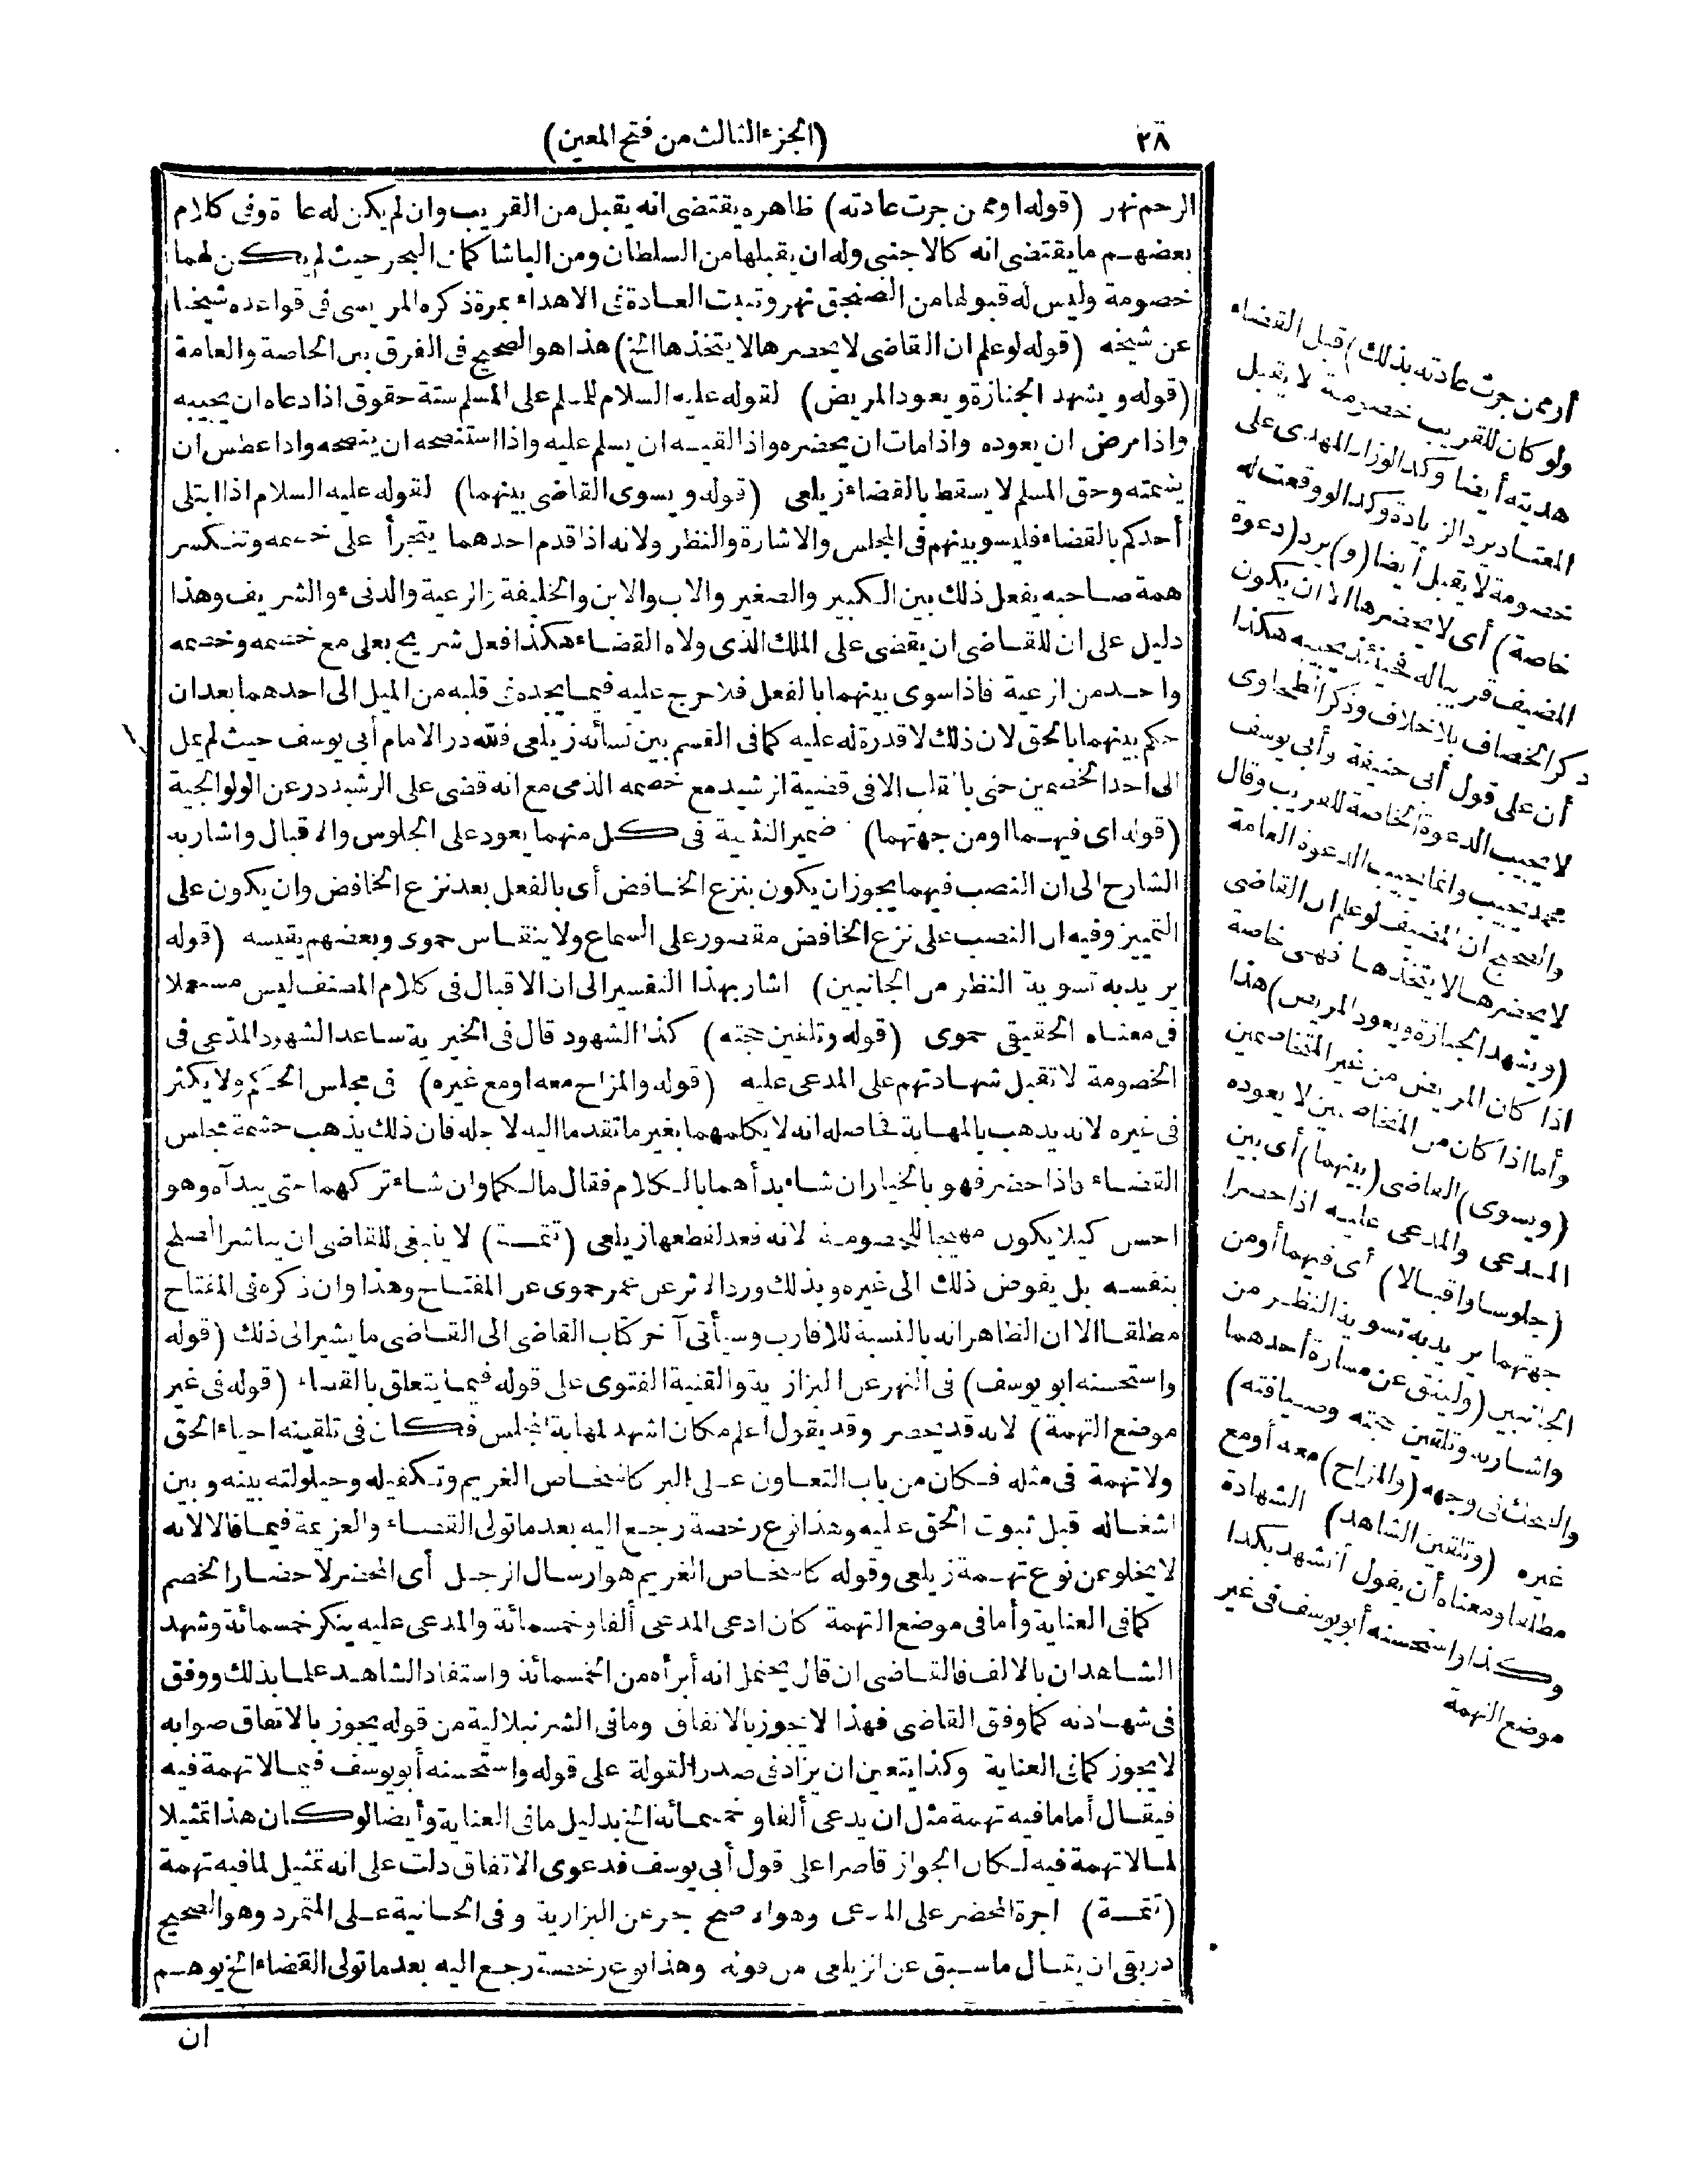 ٢٨
(الجزء الثالث من فتح المعين)
الرحم نهر (قوله او ممن جرت عادته) ظاهره يقتضى انه يقبل من القريب وان لم يكن له عادة وفى كلام
بعضهم ما يقتضى انه كالاجنبى وله ان يقبلها من السلطان ومن الباشا كما فى البحر حيث لم يكن لهما
خصومة وليس له قبولها من الصنجق نهر وتثبت العادة فى الاهداء بمرة ذكره المريسى فى قواعده شيخنا
عن شيخه (قوله لو علم ان القاضى لا يحضرها لا يتخذها الخ) هذا هو الصحيح فى الفرق بين الخاصة والعامة
(قوله ويشهد الجنازة ويعود المريض) لقوله عليه السلام للمسلم على المسلم ستة حقوق اذا دعاه ان يجيبه
واذا مرض ان يعوده واذا مات ان يحضره واذا لقيه ان يسلم عليه واذا استنصحه ان ينصحه واذا عطس ان
يشمته وحق المسلم لا يسقط بالقضاء زيلعى (قوله ويسوى القاضى بينهما) لقوله عليه السلام اذا ابتلى
أحدكم بالقضاء فليسو بينهم فى المجلس والاشارة والنظر ولانه اذا قدم احدهما يتجرأ على خصمه وتنكسر
همة صاحبه يفعل ذلك بين الكبير والصغير والاب والابن والخليفة والرعية والدنىء والشريف وهذا
دليل على ان للقاضى ان يقضى على الملك الذى ولاه القضاء هكذا فعل شريح بعلى مع خصمه وخصمه
واحد من الرعية فاذا سوى بينهما بالفعل فلا حرج عليه فيما يجده فى قلبه من الميل الى احدهما بعد ان
حكم بينهما بالحق لان ذلك لا قدرة له عليه كما فى القسم بين نسائه زيلعى فلله در الامام أبى يوسف حيث لم يمل
الى احد الخصمين حتى بالقلب الا فى قضية الرشيد مع خصمه الذمى مع انه قضى على الرشيد در عن الولوالجية
(قوله اى فيهما او من جهتهما) ضمير التثنية فى كل منهما يعود على الجلوس والاقبال واشار به
الشارح الى ان النصب فيهما يجوز ان يكون بنزع الخافض أى بالفعل بعد نزع الخافض وان يكون على
التمييز وفيه ان النصب على نزع الخافض مقصور على السماع ولا ينقاس حموى وبعضهم يقيسه (قوله
يريد به تسوية النظر من الجانبين) اشار بهذا التفسير الى ان الاقبال فى كلام المصنف ليس مستعملا
فى معناه الحقيقى حموى (قوله وتلقين حجته) كذا الشهود قال فى الخيرية ساعد الشهود المدعى فى
الخصومة لا تقبل شهادتهم على المدعى عليه (قوله والمزاح معه او مع غيره) فى مجلس الحكم ولا يكثر
فى غيره لانه يذهب بالمهابة فحاصله انه لا يكلمهما بغير ما تقدما اليه لاجله فان ذلك يذهب حشمة مجلس
القضاء واذا حضر فهو بالخيار ان شاء بدأهما بالكلام فقال مالكما وان شاء تركهما حتى يبدآه وهو
احسن كيلا يكون مهيجا للخصومة لانه قعد لقطعها زيلعى (تتمة) لا ينبغى للقاضى ان يباشر الصلح
بنفسه بل يفوض ذلك الى غيره وبذلك ورد الاثر عن عمر حموى عن المفتاح وهذا وان ذكره فى المفتاح
مطلقا الا ان الظاهر انه بالنسبة للاقارب وسيأتى آخر كتاب القاضى الى القاضى ما يشير الى ذلك (قوله
واستحسنه ابو يوسف) فى النهر عن البزازية والقنية الفتوى على قوله فيما يتعلق بالقضاء (قوله فى غير
موضع التهمة) لانه قد يحصر وقد يقول اعلم مكان اشهد لمهابة المجلس فكان فى تلقينه احياء الحق
ولا تهمة فى مثله فكان من باب التعاون على البر كاشخاص الغريم وتكفيله وحيلولته بينه وبين
اشغاله قبل ثبوت الحق عليه وهذا نوع رخصة رجع اليه بعد ما تولى القضاء والعزيمة فيما قالا لانه
لا يخلو عن نوع تهمة زيلعى وقوله كاشخاص الغريم هو ارسال الرجل أى المحضر لاحضار الخصم
كما فى العناية وأما فى موضع التهمة كان ادعى المدعى ألفا وخمسمائة والمدعى عليه ينكر خمسمائة وشهد
الشاهدان بالالف فالقاضى ان قال يحتمل انه أبرأه من الخمسمائة واستفاد الشاهد علما بذلك ووفق
فى شهادته كما وفق القاضى فهذا لا يجوز بالاتفاق وما فى الشرنبلالية من قوله يجوز بالاتفاق صوابه
لا يجوز كما فى العناية وكذا يتعين ان يزاد فى صدر القولة على قوله واستحسنه أبو يوسف فيما لا تهمة فيه
فيقال أما ما فيه تهمة مثل ان يدعى ألفا وخمسمائة الخ بدليل ما فى العناية وأيضا لو كان هذا تمثيلا
لما لا تهمة فيه لكان الجواز قاصرا على قول أبى يوسف فدعوى الاتفاق دلت على انه تمثيل لما فيه تهمة
(تتمة) اجرة المحضر على المدعى وهو الاصح بحر عن البزازية وفى الخانية على المتمرد وهو الصحيح
در بقى ان يقال ما سبق عن الزيلعى من قوله وهذا نوع رخصة رجع اليه بعد ما تولى القضاء الخ يوهم
ان
أو ممن جرت عادته بذلك) قبل القضاء
ولو كان للقريب خصومة لا يقبل
هديته أيضا وكذا لو زاد المهدى على
المعتاد يرد الزيادة وكذا لو وقعت له
خصومة لا يقبل أيضا (و) يرد (دعوة
خاصة) أى لا يحضرها الا ان يكون
المضيف قريبا له فحينئذ يجيبه هكذا
ذكر الخصاف بلا خلاف وذكر الطحاوى
أن على قول أبى حنيفة وأبى يوسف
لا يجيب الدعوة الخاصة للقريب وقال
محمد يجيب وانما يجيب الدعوة العامة
والصحيح ان المضيف لو علم ان القاضى
لا يحضرها لا يتخذها فهى خاصة
(ويشهد الجنازة ويعود المريض) هذا
اذا كان المريض من غير المتخاصمين
وأما اذا كان من المتخاصمين لا يعوده
(ويسوى) القاضى (بينهما) أى بين
المدعى والمدعى عليه اذا حضرا
(جلوسا واقبالا) أى فيهما أو من
جهتهما يريد به تسوية النظر من
الجانبين (وليتق عن مسارة أحدهما
واشارته وتلقين حجته وضيافته)
والضحك فى وجهه (والمزاح) معه أو مع
غيره (وتلقين الشاهد) الشهادة
مطلقا ومعناه أن يقول أتشهد بكذا
وكذا واستحسنه أبو يوسف فى غير
موضع التهمة